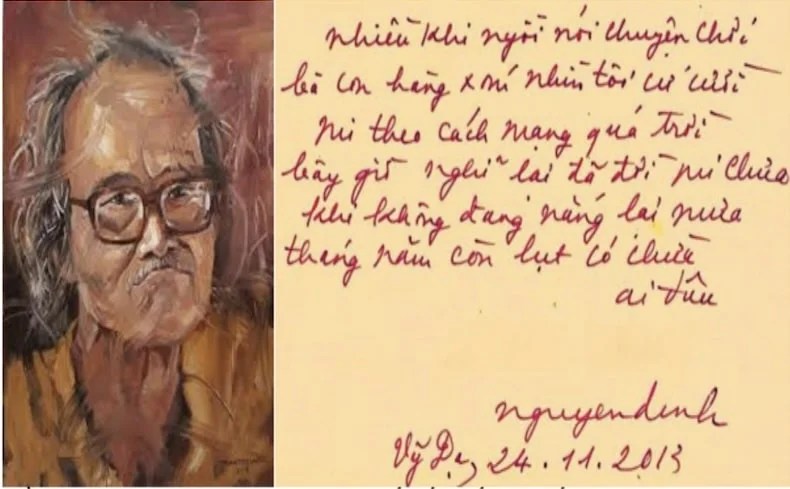 nhiều khi ngồi nói chuyện chơi
bà con hàng xóm nhìn tôi cứ cười
mi theo cách mạng quá trời
bây giờ nghĩ lại đã đời mi chưa
khi không đang nắng lại mưa
tháng năm còn lụt có chừa
ai đâu
nguyendinh
Vỹ Dạ, 24.11.2013